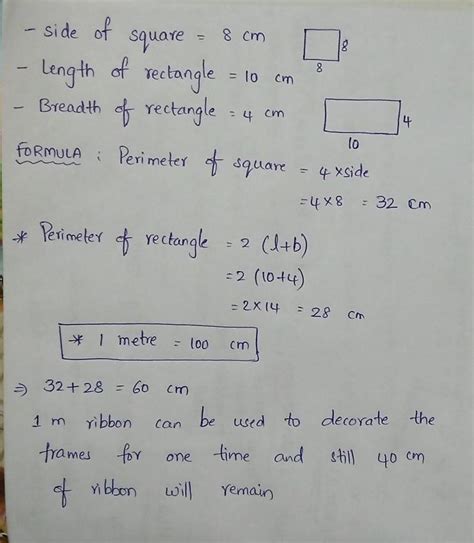 - side of square = 8 cm
8
8
- Length of rectangle = 10 cm
- Breadth of rectangle = 4 cm
4
10
FORMULA : Perimeter of square = 4 × side
= 4 × 8 = 32 cm
* Perimeter of rectangle = 2 (l+b)
= 2 (10+4)
= 2×14 = 28 cm
* 1 metre = 100 cm
⇒ 32+28 = 60 cm
1 m ribbon can be used to decorate the
frames for one time and still 40 cm
of ribbon will remain